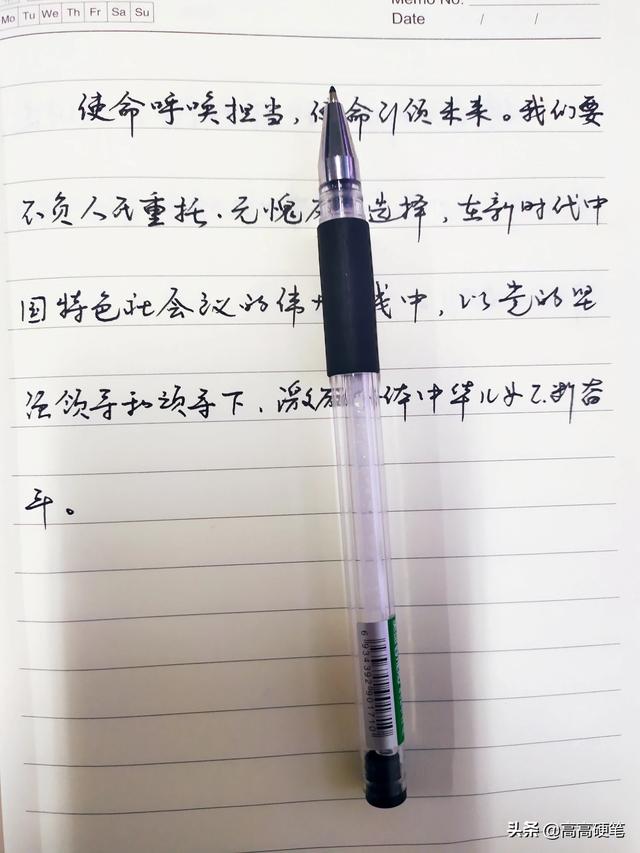 Mo Tu We Th Fr Sa Su
Memo No.
Date / /
使命呼唤担当，使命引领未来。我们要
不负人民重托、无愧历选择，在新时代中
国特色社会议的伟大践中，以党的坚
强领导和领导下，激励体中华儿女不断奋
斗。
6 934392 901710
头条 @高高硬笔